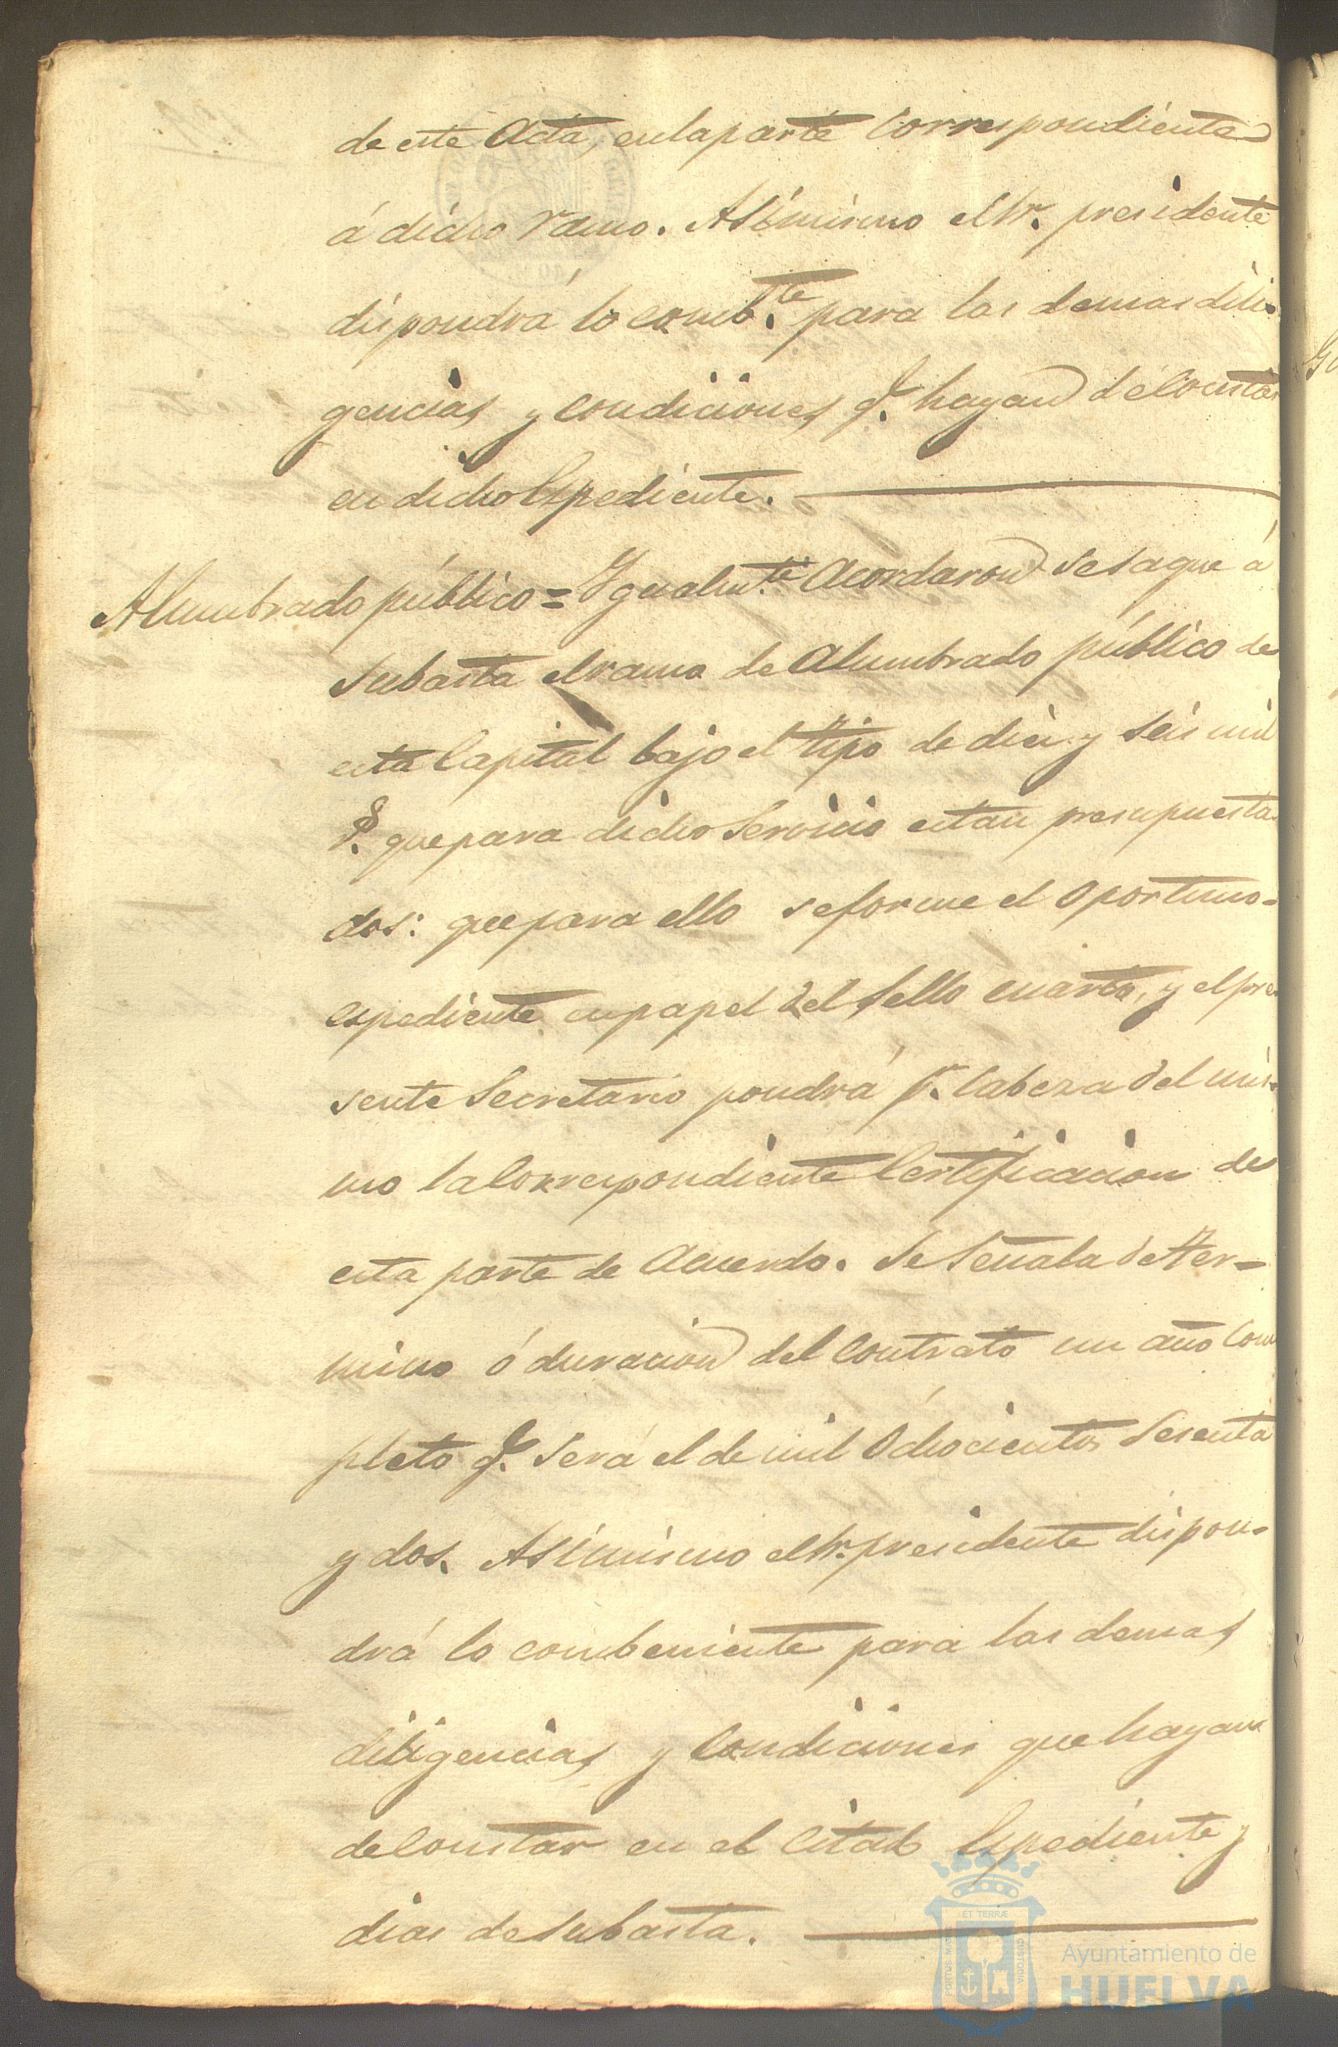 de este Acta, en la parte Correspondiente
á dicho ramo. Asimismo el Sr. presidente
dispondrá lo comb.te para las demas dili-
gencias y condiciones q.e hayan de constar
en dicho Espediente.
Alumbrado público = Igualm.te Acordaron se saque á
Subasta el ramo de Alumbrado público de
esta Capital bajo el tipo de diez y seis mil
que para dicho Servicio estan presupuesta
dos: que para ello se forme el oportuno
espediente en papel del Sello cuarto, y el pre
sente Secretario pondrá p.r Cabeza del mis-
mo la Correspondiente Certificacion de
esta parte de Acuerdo. Se Señala de ter-
mino ó duracion del Contrato un año Com
pleto q.e Será el de mil Ochocientos Sesenta
y dos. Asimismo el Sr. presidente dispon-
drá lo combeniente para las demas
diligencias y Condiciones que hayan
de Constar en el Citado Espediente y
dias de Subasta.
ET TERRÆ
PORTUS MARIS
CUSTODIA
Ayuntamiento de
HUELVA